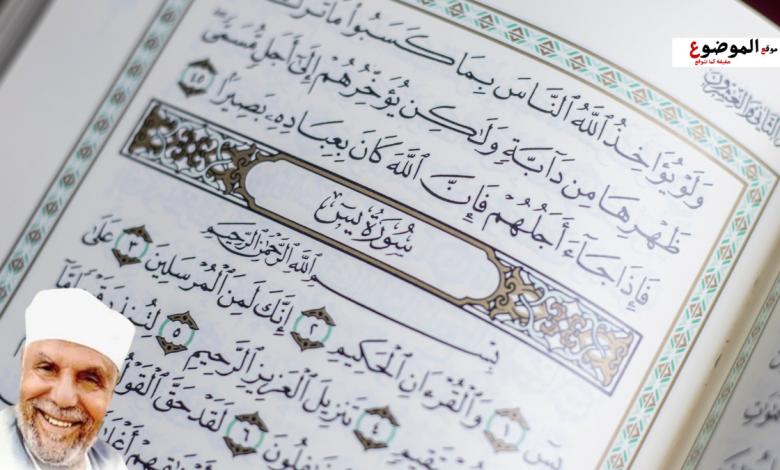 موقع الموضوع
حقيقة كما تتوقع
وَلَوْ يُؤَاخِذُ ٱللَّهُ ٱلنَّاسَ بِمَا كَسَبُوا۟ مَا تَرَكَ
ظَهْرِهَا مِن دَآبَّةٍ وَلَـٰكِن يُؤَخِّرُهُمْ إِلَىٰٓ أَجَلٍ مُّسَمًّى
فَإِذَا جَآءَ أَجَلُهُمْ فَإِنَّ ٱللَّهَ كَانَ بِعِبَادِهِۦ بَصِيرًۢا ٤٥
سُورَةُ يسٓ
بِسْمِ ٱللَّهِ ٱلرَّحْمَـٰنِ ٱلرَّحِيمِ
يسٓ ١ وَٱلْقُرْءَانِ ٱلْحَكِيمِ ٢ إِنَّكَ لَمِنَ ٱلْمُرْسَلِينَ ٣ عَلَىٰ
مُّسْتَقِيمٍ ٤ تَنزِيلَ ٱلْعَزِيزِ ٱلرَّحِيمِ ٥ لِتُنذِرَ قَوْمًا
٦ لَقَدْ حَقَّ ٱلْقَوْلُ